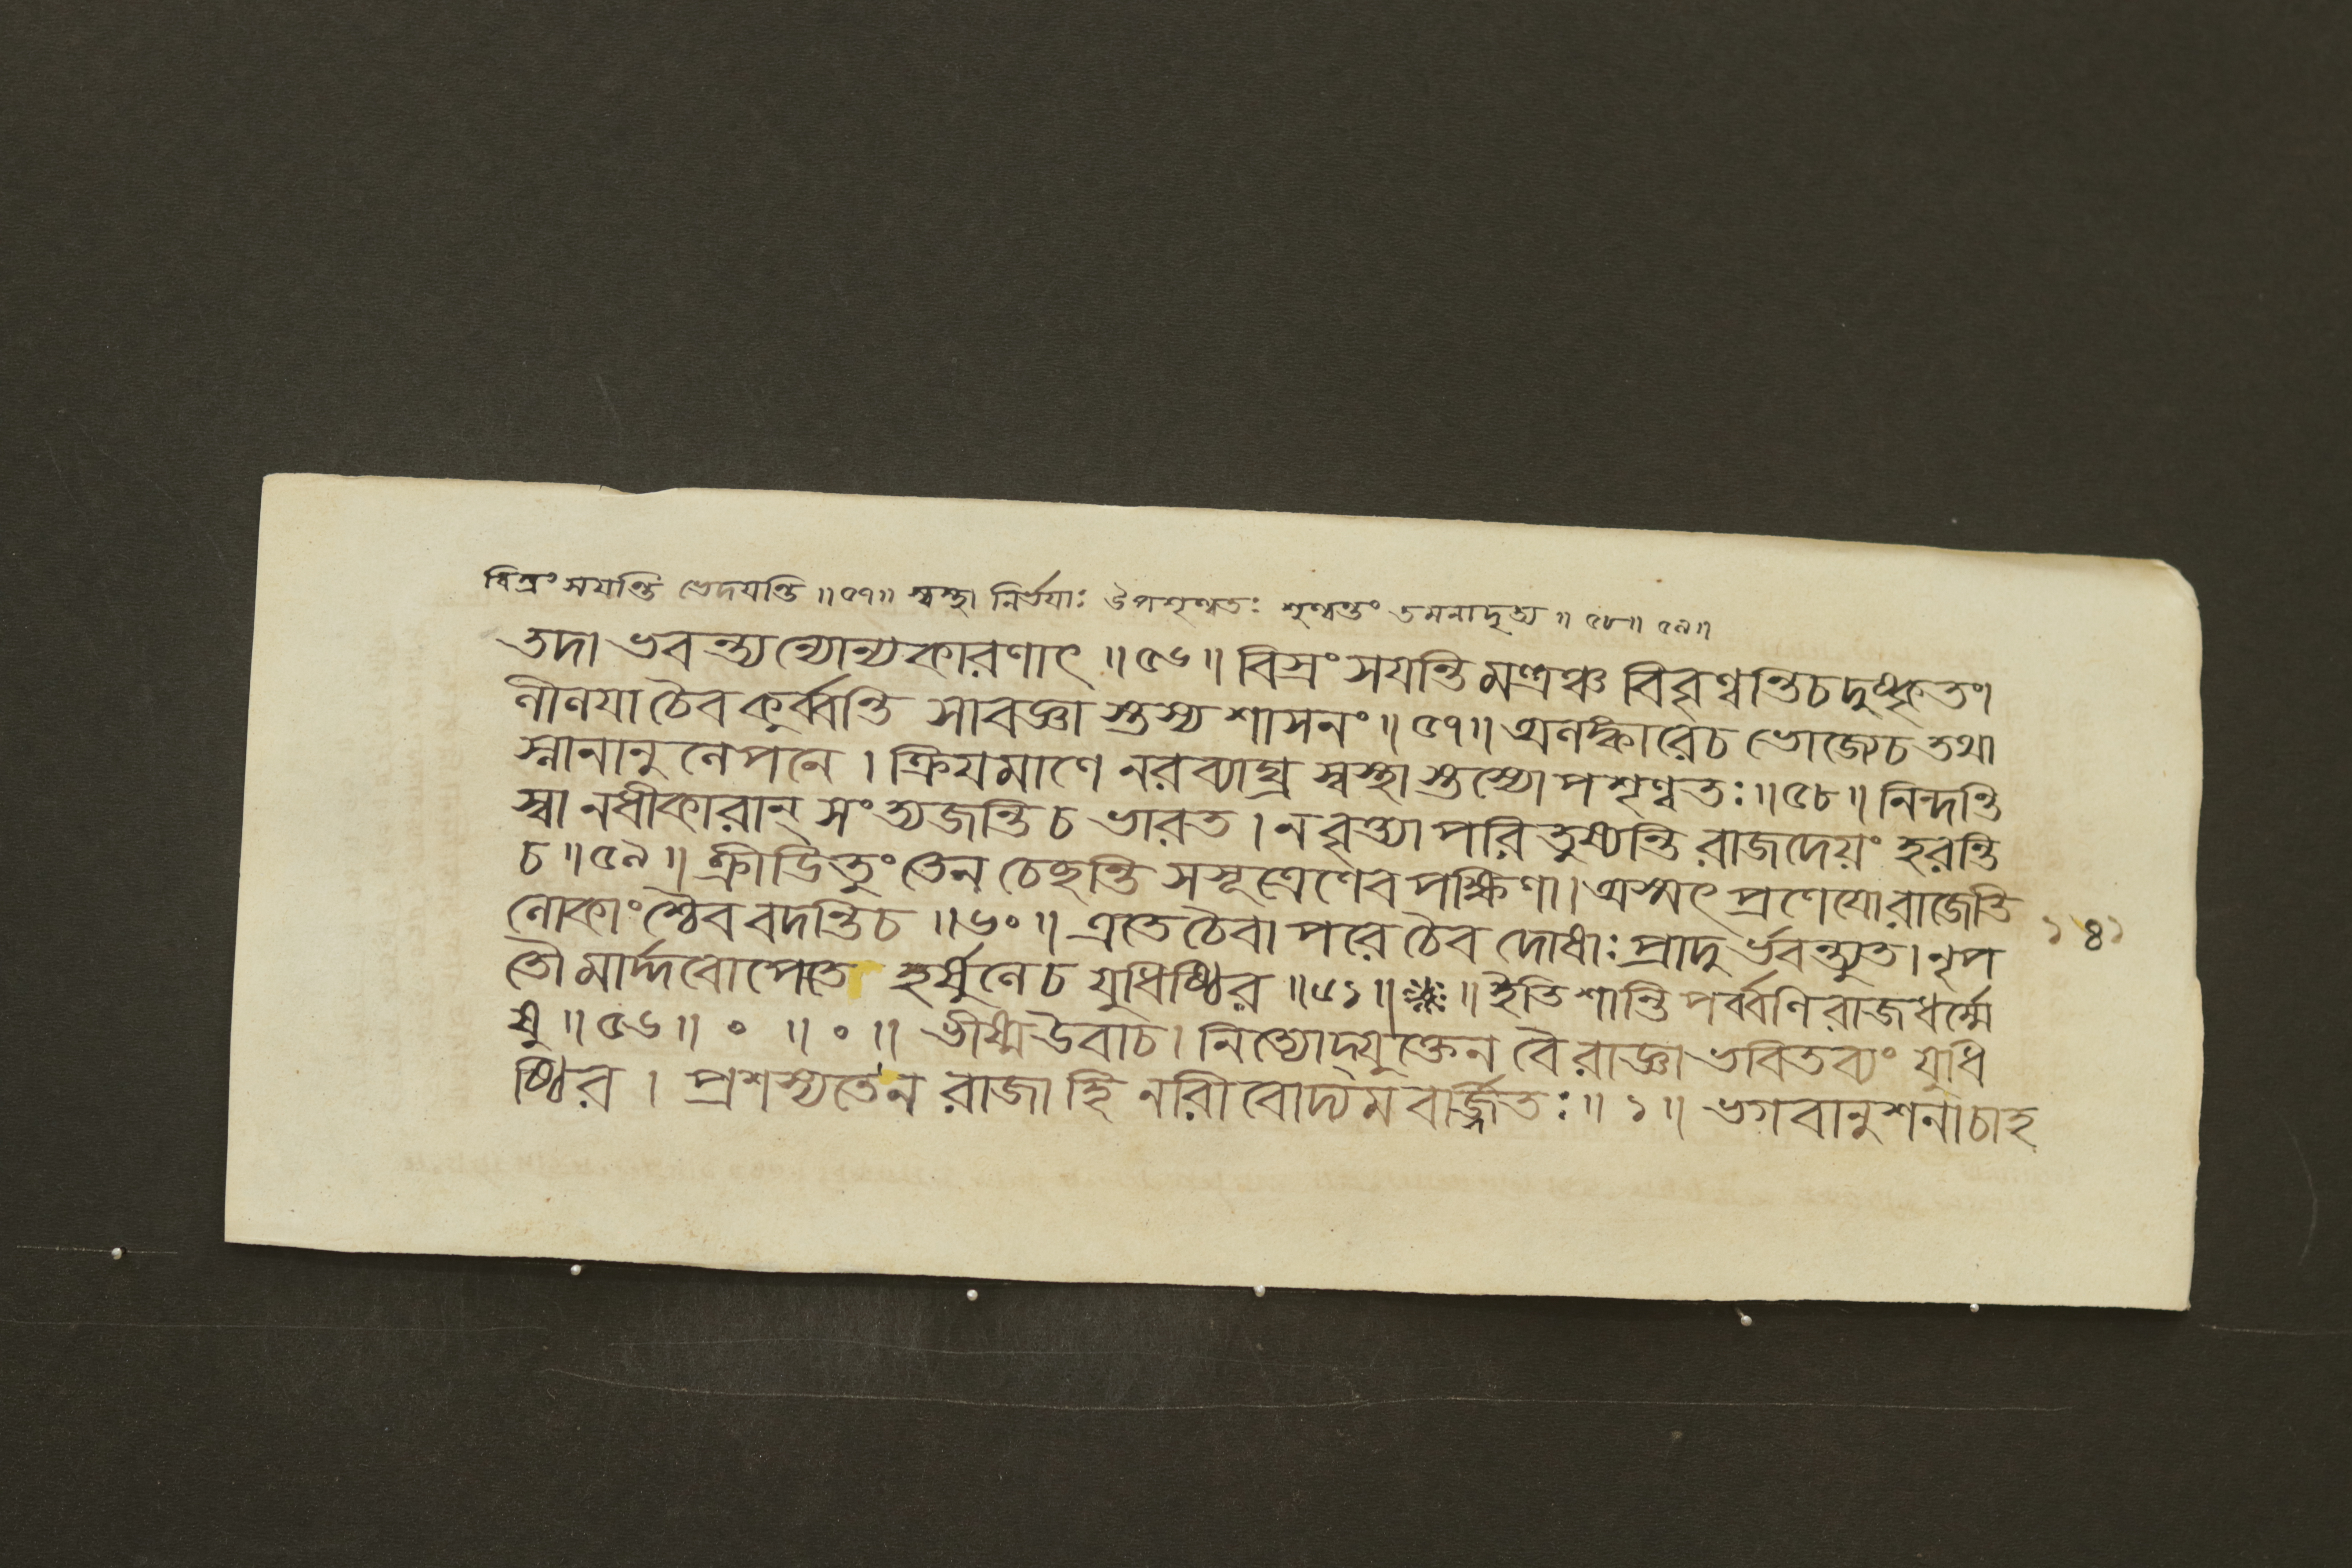 বিস্রংসযন্তি ভেদযন্তি ॥ ৫৭ ॥ স্বস্থা নির্ভযাঃ উপশৃণ্বতঃ শৃণ্বন্তং তমনাদৃত্য ॥ ৫৮ ॥ ৫৯ ॥
তদা ভবন্ত্যন্যোন্যকারণাৎ ॥ ৫৬ ॥ বিস্রংসযন্তি মন্ত্রঞ্চ বিবৃণ্বন্তি চ দুষ্কৃতং।
লীলযা চৈব কুর্ব্বন্তি সাবজ্ঞাস্তস্য শাসনং ॥ ৫৭ ॥ অলঙ্কারে চ ভোজ্যে চ তথা
স্নানানুলেপনে । ক্রিযমাণে নরব্যাঘ্র স্বস্থাস্তস্যোপশৃণ্বতঃ ॥ ৫৮ ॥ নিন্দন্তি
স্বানধীকারান্ সংত্যজন্তি চ ভারত । ন বৃত্ত্যা পরিতুষ্যন্তি রাজদেয়ং হরন্তি
চ ॥ ৫৯ ॥ ক্রীডিতুং তেন চেছন্তি সসূত্রেণেব পক্ষিণা । অস্মৎপ্রণেযো রাজেতি
লোকাংশ্চৈব বদন্তি চ ॥ ৬০ ॥ এতে চৈবাপরে চৈব দোষাঃ প্রাদুর্ভবন্ত্যুত । নৃপ
তৌ মার্দ্দবোপেতে হর্ষুলে চ যুধিষ্ঠির ॥ ৬১ ॥ ॥ ইতি শান্তিপর্ব্বণি রাজধর্ম্মে
ষু ॥ ৫৬ ॥ ० ॥ ० ॥ ভীষ্ম উবাচ । নিত্যোদ্যুক্তেন বৈ রাজ্ঞা ভবিতব্যং যুধি
ষ্ঠির । প্রশস্যতে ন রাজা হি নারীবোদ্যমবর্জ্জিতঃ ॥ ১ ॥ ভগবানুশনা চাহ
১৪১